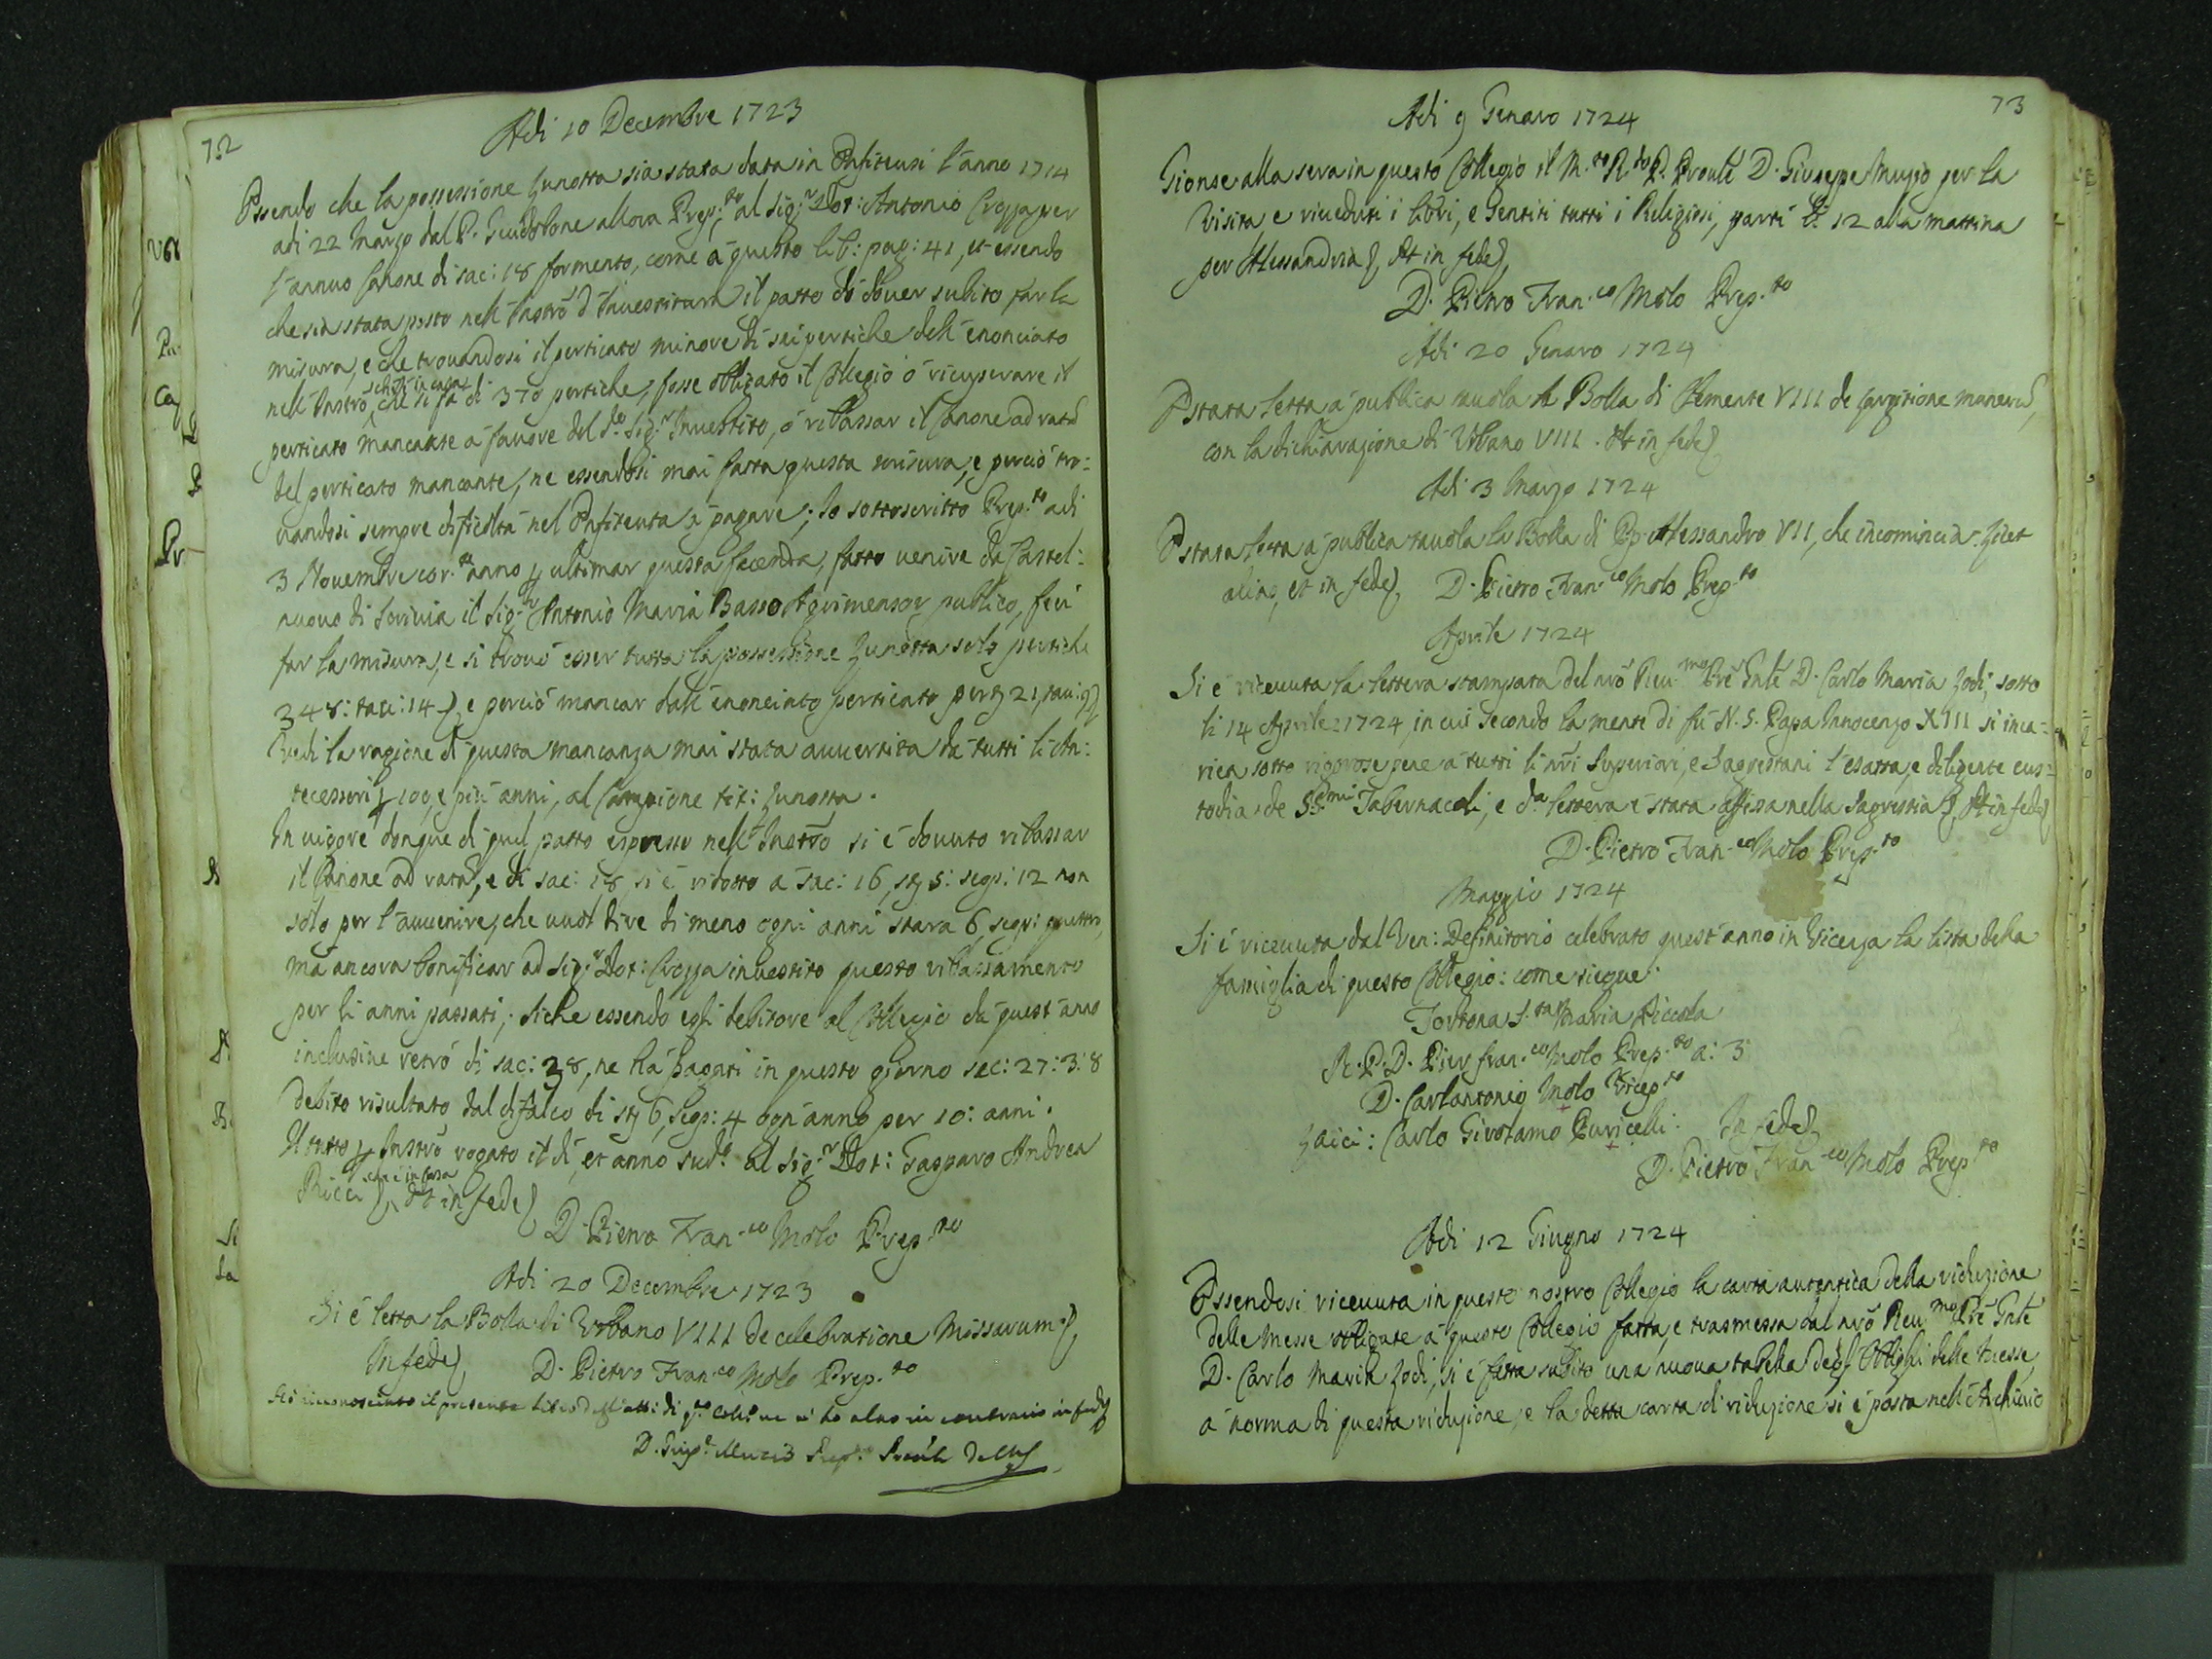 72
Adi 10 Decembre 1723
Essendo che la possessione Zunotta sia stata data in Enfiteusi l'anno 1714
adi 22 Marzo dal P. allora Prep.to al Sig.r Dot: Antonio Crozza per
l'annuo Canone di sac: 18 formento, come à questo lib: pag: 41, et essendo
che sia stata posto nell'Instro d'Inuestitura il patto di douer subito far la
misura, e che trouandosi il perticato minore di sei pertiche dell'enonciato
nell'Instro, ch'è in casa, che si fà di 370 pertiche, fosse obligato il Collegio ò ricuperare il
perticato mancante à fauore del d.o Sig.r Inuestito, ò ribassar il Canone ad ratã
del perticato mancante, ne essendosi mai fatta questa misura, e perciò tro:
uandosi sempre dificoltà nel Enfiteuta à pagare; Io sottoscritto Prep.to adi
3 Nouembre cor.te anno ultimar questa facenda, fatto uenire da Castel:
nuouo di Scriuia il Sig.r Antonio Maria Basso Agrimensor publico, feci
far la misura, e si trouò esser tutta la possessione Zunotta solo pertiche
348: tau: 14, e perciò mancar dall'enonciato perticato pert 21, tau: 9
Vedi la ragione di questa mancanza mai stata auuertita da tutti li An:
tecessori 100, e più anni, al Campione tit: Zunotta.
In uigore donque di quel patto espresso nell'Instro si è douuto ribassar
il Canone ad ratã, e di sac: 18 si è ridotto a sac: 16, st 5: scop: 12 non
solo per l'auuenire, che uuol dire di meno ogni anni stara 6, scop: quattro,
mà ancora bonificar ad Sig.r Dot: Crozza inuestito questo ribassamento
per li anni passati; siche essendo egli debitore al Collegio da quest'anno
inclusiue retrò di sac: 38, ne hà pagati in questo giorno sac: 27: 3: 8
debito risultato dal difalco di st 6, scop: 4 ogn'anno per 10: anni.
Il tutto Instro rogato il dì, et anno sud.o al Sig.r Dot: Gasparo Andrea
Ricci ch'è in casa, et in fede
D. Pietro Fran.co Molo Prep.to
Adi 20 Decembre 1723
Si è letta la Bolla di Vrbano VIII de celebratione Missarum
In fede D. Pietro Fran.co Molo Prep.to
Hò riconosciuto il presente libro degl'atti di q.to Coll.o ne ui hò altro in contrario in fede
D. Gius.e Mugio Prep.o Proule
73
Adi 9 Genaro 1724
Gionse alla sera in questo Collegio il M.to R.do P. Proule D. Giuseppe Mugio per la
Visita, e riueduti i libri, e sentiti tutti i Religiosi, partì li 12 alla mattina
per Alessandria, et in fede
D. Pietro Fran.co Molo Prep.to
Adi 20 Genaro 1724
E stata letta a publica tauola la Bolla di Clemente VIII de largitione munerũ,
con la dichiarazione di Vrbano VIII. Et in fede
Adi 3 Marzo 1724
E stata letta à publica tauola la Bolla di Pp. Alessandro VII, che incomincia. Licet
alias, et in fede D. Pietro Fran.co Molo Prep.to
Aprile 1724
Si è riceuuta la lettera stampata del nrõ Reu.mo Prẽ Gnle D. Carlo Maria Lodi, sotto
li 14 Aprile 1724 in cui secondo la mente di fù N. S. Papa Innocenzo XIII si inca-
rica sotto rigorose pene à tutti li nrĩ Superiori, e Sagrestani l'esatta, e diligente cus:
todia de SS.mi Tabernacoli, e d.a lettera è stata affissa nella Sagrestia, et in fede
D. Pietro Fran.co Molo Prep.to
Maggio 1724
Si è riceuuta dal Ven: Definitorio celebrato quest'anno in Vicenza la lista della
famiglia di questo Collegio: come siegue.
Tortona S.ta Maria Piccola
R. P. D. Pier fran.co Molo Prep.to a: 3
D. Carlantonio Molo Vicep.to
Laici: Carlo Girolamo Puricelli. In fede
D. Pietro Fran.co Molo Prep.to
Adi 12 Giugno 1724
Essendosi riceuuta in questo nostro Collegio la carta autentica della riduzione
delle Messe obligate à questo Collegio fatta, e trasmessa dal nrõ Reu.mo Prẽ Gnle
D. Carlo Maria Lodi, si è fatta subito una nuoua tabella degl'Oblighi delle Messe
à norma di questa riduzione, e la detta carta di riduzione si è posta nell'Archiuio